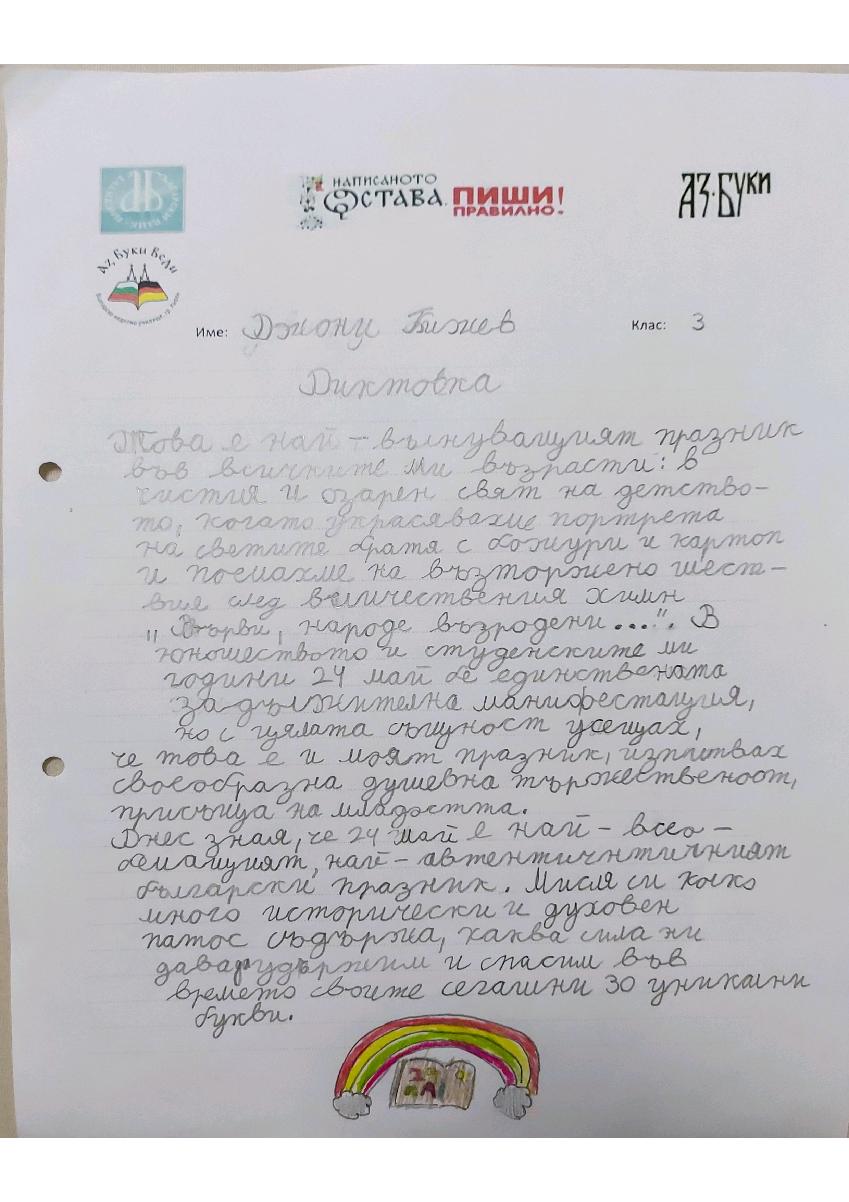 НАПИСАНОТО
ОСТАВА. ПИШИ!
ПРАВИЛНО.
АЗ·БУКИ
Аз, Буки Веди
Име: Джони Бижев Клас: 3
Диктовка
Това е най-вълнуващият празник
във всичките ми възрасти: в
чистия и озарен свят на детство-
то, когато украсявахме портрета
на светите братя с божури и картоп
и поемахме на възторжено шест-
вия след величествения химн
„Върви, народе възродени...". В
юношеството и студенските ми
години 24 май бе единствената
задължителна манифестация,
но с цялата същност усещах,
че това е и моят празник, изпитвах
своеобразна душевна тържественост,
присъща на младостта.
Днес зная, че 24 май е най-всео-
бемащият, най-автентичнтичният
български празник. Мисля си коко
много исторически и духовен
патос съдържа, каква сила ни
дава удържим и спасим във
времето своите сегашни 30 уникални
букви.